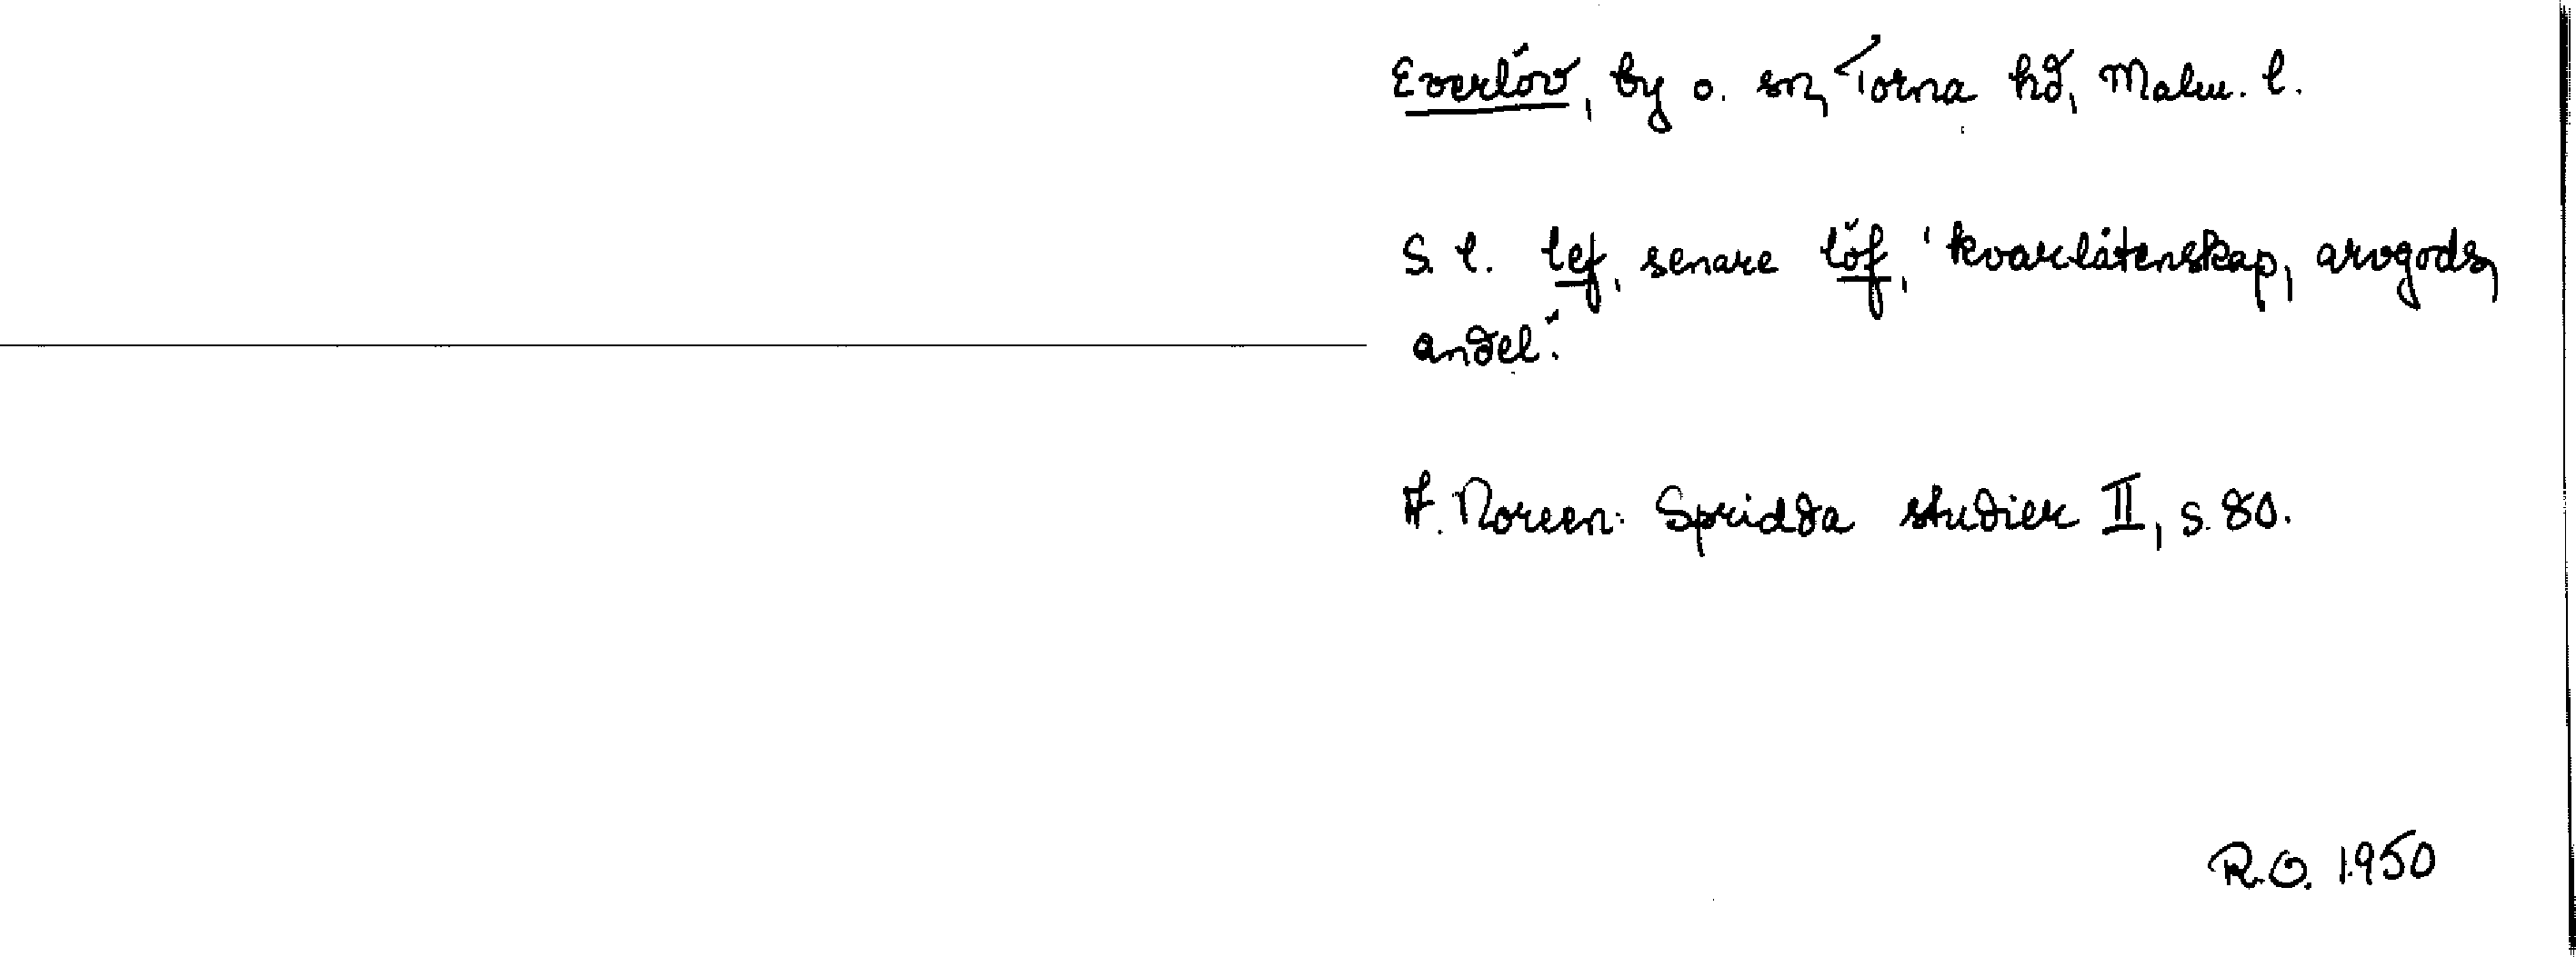 Everlöv, by o. sn, Torna hd, Malm. l.
S. l. lef, senare löf, 'kvarlåtenskap, arvgods,
andel.'
A. Noreen: Spridda studier II, s. 80.
R.O. 1950